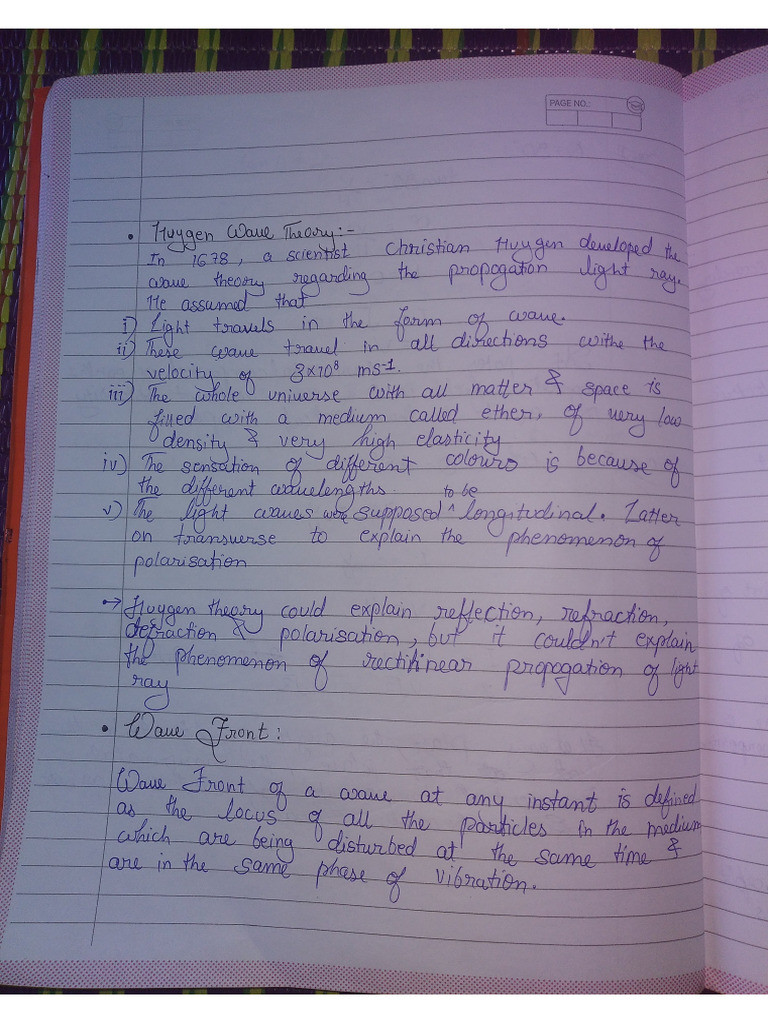 PAGE NO.:
• Huygen Wave Theory:-
In 1678, a scientist Christian Huygen developed the
wave theory regarding the propogation light ray.
He assumed that
i) Light travels in the form of wave.
ii) These wave travel in all directions withe the
velocity of 3×10⁸ ms⁻¹.
iii) The whole universe with all matter & space is
filled with a medium called ether, of very low
density & very high elasticity
iv) The sensation of different colours is because of
the different wavelengths.
v) The light waves were supposed ^to be longitudinal. Latter
on transverse to explain the phenomenon of
polarisation
→ Huygen theory could explain reflection, refraction,
defraction & polarisation, but it couldn't explain
the phenomenon of rectilinear propogation of light
ray
• Wave Front:
Wave Front of a wave at any instant is defined
as the locus of all the particles in the medium
which are being disturbed at the same time &
are in the same phase of vibration.